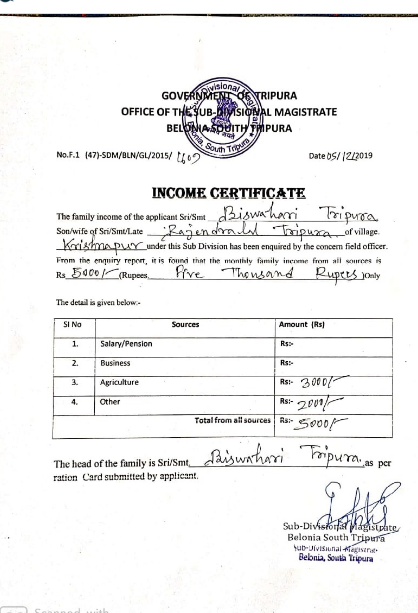 GOVERNMENT OF TRIPURA
OFFICE OF THE SUB-DIVISIONAL MAGISTRATE
BELONIA SOUTH TRIPURA
Sub-Divisional Magistrate
South Tripura
No.F.1 (47)-SDM/BLN/GL/2015/ Date 05/12/2019
INCOME CERTIFICATE
The family income of the applicant Sri/Smt Biswahari Tripura
Son/wife of Sri/Smt/Late Rajendralal Tripura of village.
Krishnapur under this Sub Division has been enquired by the concern field officer.
From the enquiry report, it is found that the monthly family income from all sources is
Rs 5000/- (Rupees, Five Thousand Rupees )Only
The detail is given below:-
Sl No Sources Amount (Rs)
1. Salary/Pension Rs:-
2. Business Rs:-
3. Agriculture Rs:- 3000/-
4. Other Rs:- 2000/-
Total from all sources Rs:- 5000/-
The head of the family is Sri/Smt, Biswahari Tripura as per
ration Card submitted by applicant.
Sub-Divisional Magistrate
Belonia South Tripura
Sub-Divisional Magistrate
Belonia, South Tripura
Scanned with